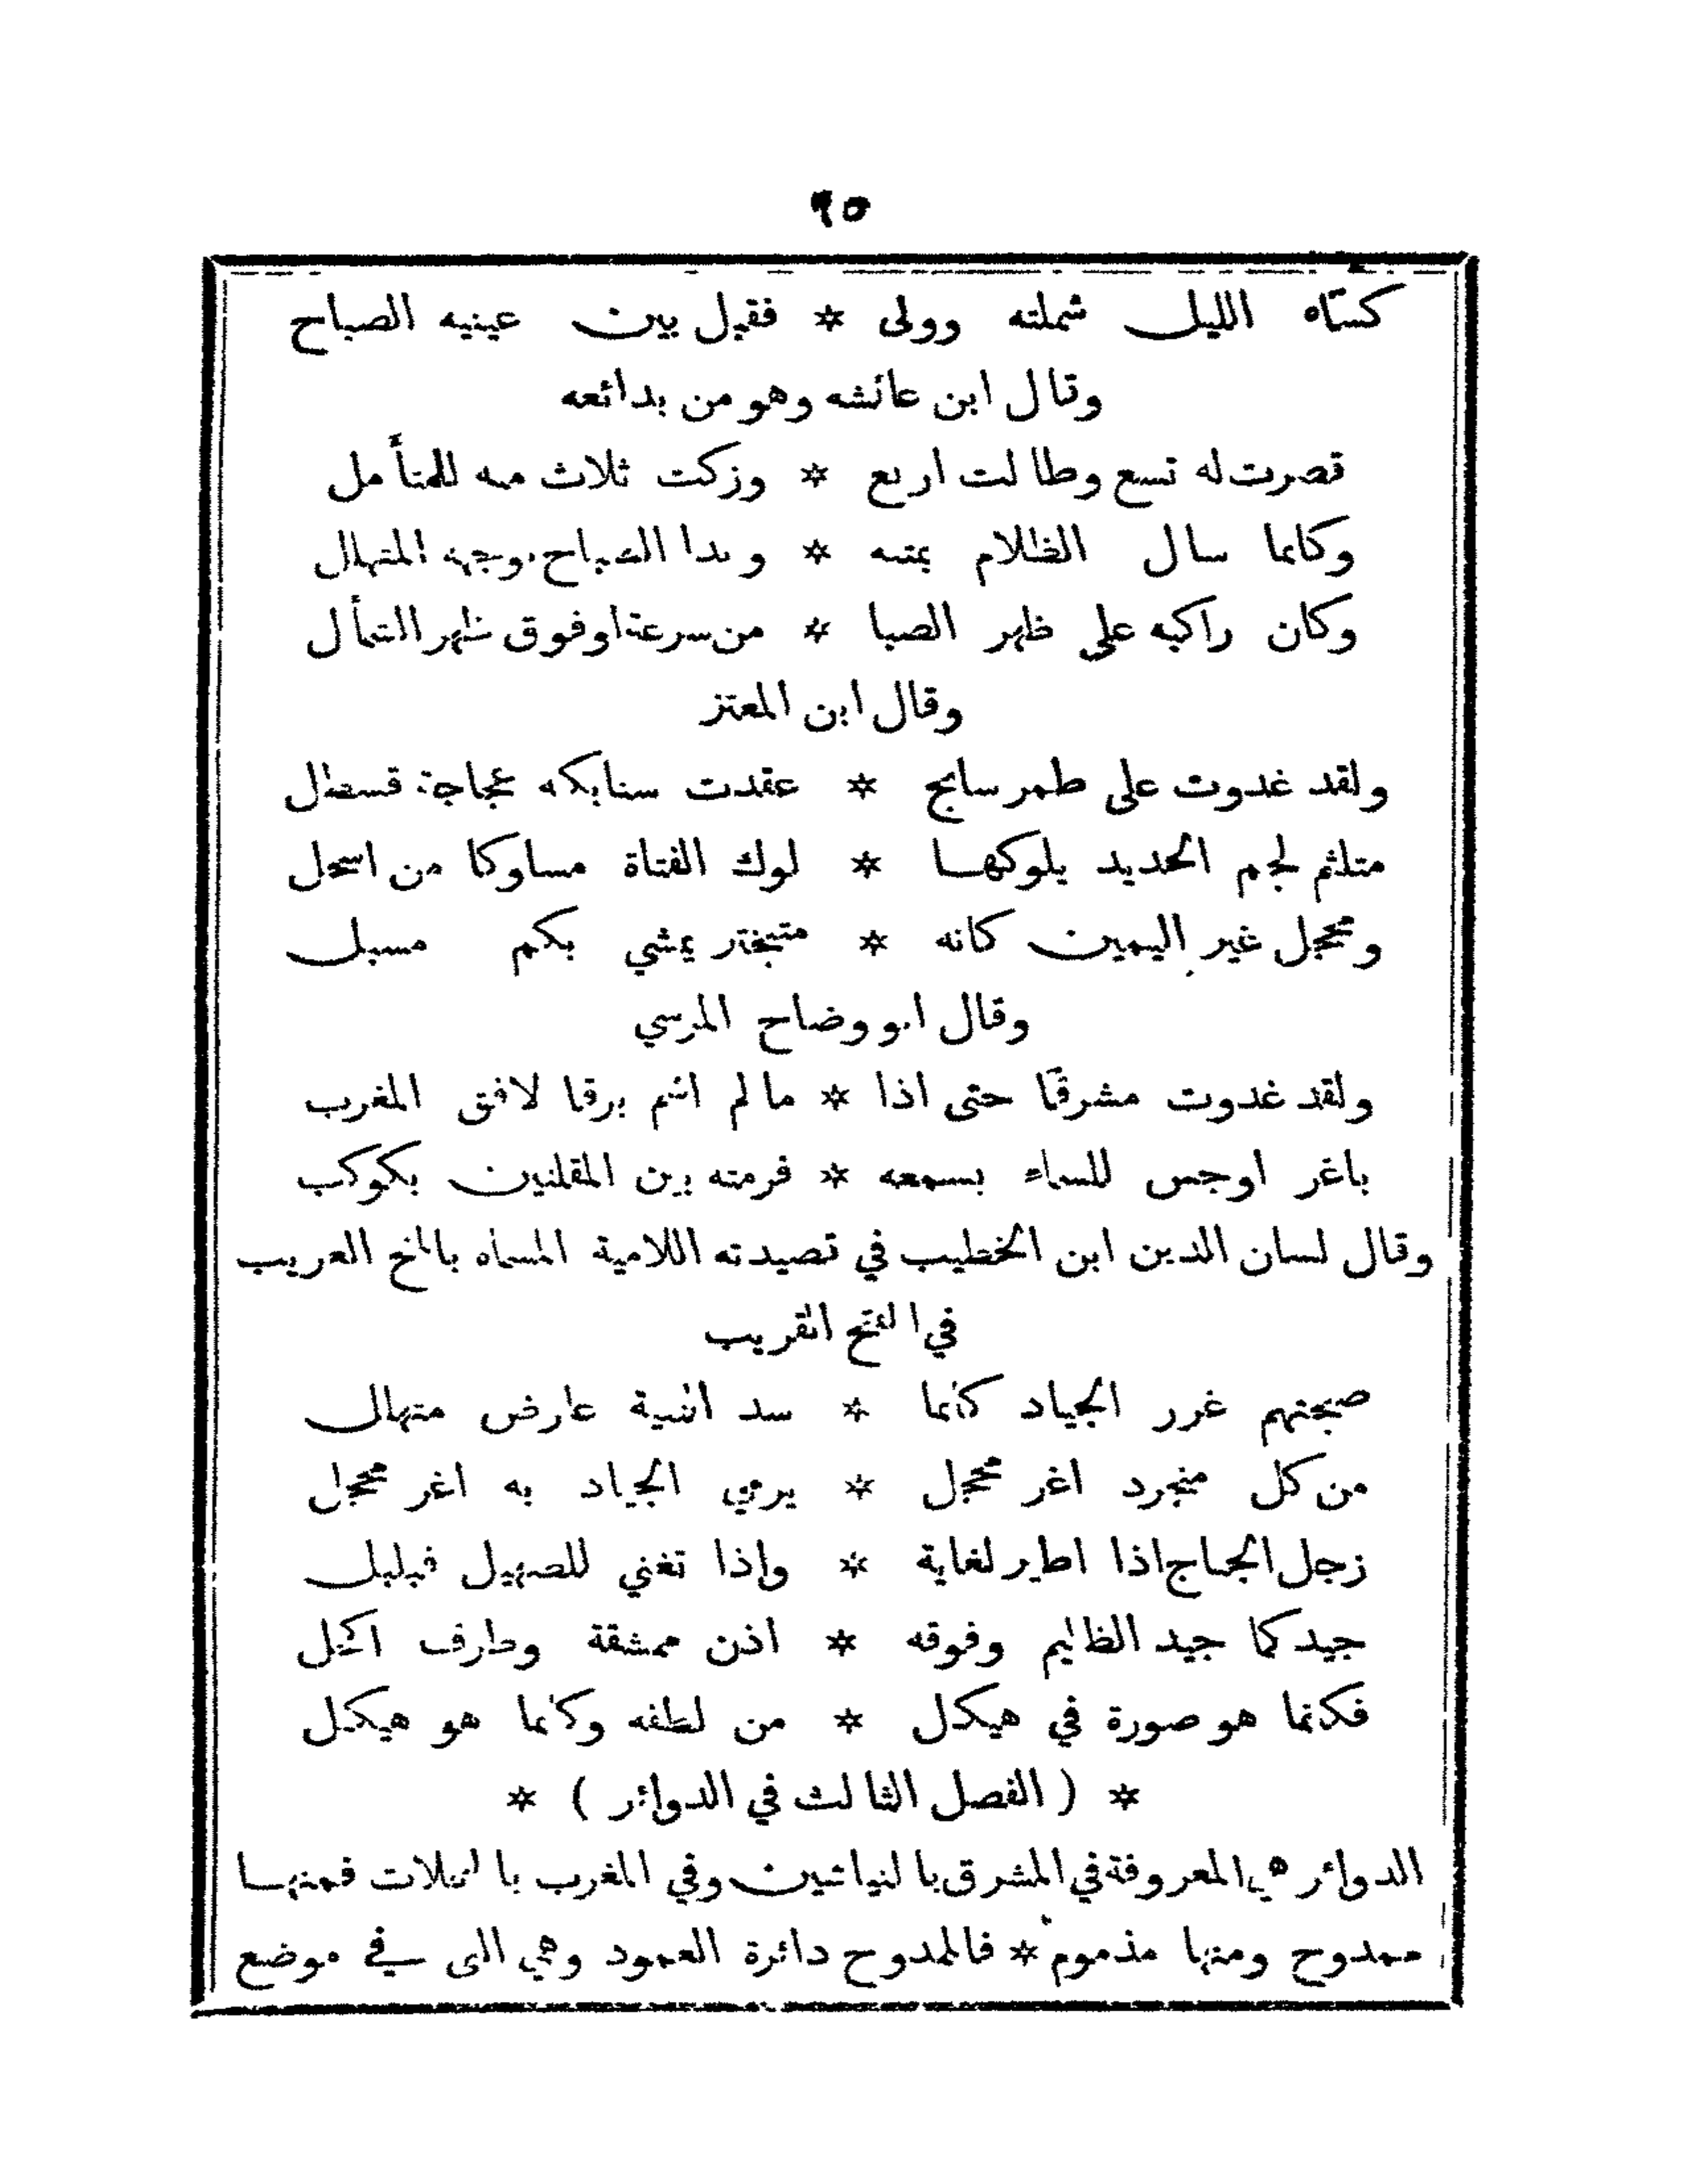 ٩٥
كستاه الليل شملته وولى * فقبل بين عينيه الصباح
وقال ابن عائشه وهو من بدائعه
قصرت له تسع وطالت اربع * وزكت ثلاث منه للمتأمل
وكانما سال الظلام بمتنه * وبدا الصباح بوجهه المتهلل
وكان راكبه على ظهر الصبا * من سرعة او فوق ظهر الشمأل
وقال ابن المعتز
ولقد غدوت على طمر سابح * عقدت سنابكه عجاجة قسطل
متلثم لجم الحديد يلوكها * لوك الفتاة مساوكا من اسحل
ومحجل غير اليمين كانه * متبختر يمشي بكم مسبل
وقال ابو وضاح المرسي
ولقد غدوت مشرقًا حتى اذا * ما لم اشم برقا لافق المغرب
باغر اوجس للسماء بسمعه * فرمته بين المقلتين بكوكب
وقال لسان الدين ابن الخطيب في قصيدته اللامية المسماه بالمنح الغريب
في الفتح القريب
صبحتهم غرر الجياد كانما * سد الثنية عارض متهلل
من كل منجرد اغر محجل * يرمي الجياد به اغر محجل
زجل الجناح اذا اطير لغاية * واذا تغنى للصهيل فبلبل
جيد كما جيد الظليم وفوقه * اذن ممشقة وطرف اكحل
فكانما هو صورة في هيكل * من لطفه وكانما هو هيكل
* ( الفصل الثالث في الدوائر ) *
الدوائر هي المعروفة في المشرق بالنياشين وفي المغرب بالنخلات فمنها
ممدوح ومنها مذموم * فالممدوح دائرة العمود وهي التي في موضع